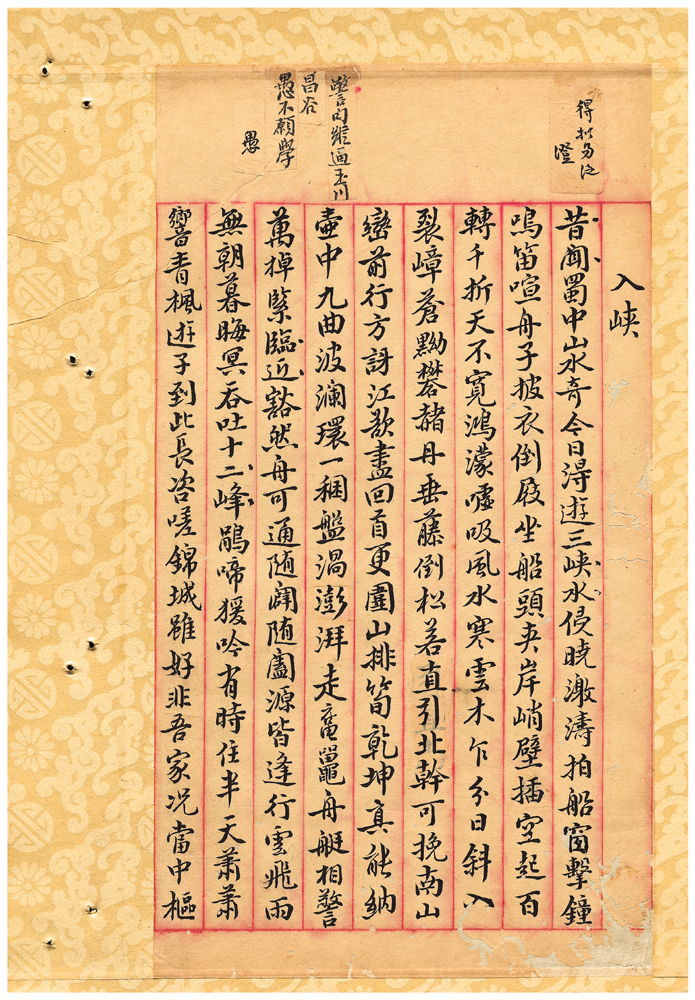 得
澄
警句縱逼玉川
昌谷
愚不願學
愚
入峡
昔聞蜀中山水奇今日得遊三峡水侵曉激濤拍船窗擊鐘
鳴笛喧舟子披衣倒屐坐船頭夾岸峭壁插空起百
轉千折天不寬鴻濛噓吸風水寒雲木乍分日斜入
裂嶂蒼黝礬赭丹垂藤倒松若直引北幹可挽南山
巒前行方訝江欲盡回首更圍山排筍乾坤真能納
壺中九曲波瀾環一稇盤渦澎湃走鼉舟艇相警
萬掉緊臨近豁然舟可通随闢随闔源皆逢行雲飛雨
無朝暮晦冥吞吐十二峰鵑啼猨吟有時住半天蕭蕭
響青楓遊子到此長咨嗟錦城雖好非吾家況當中樞